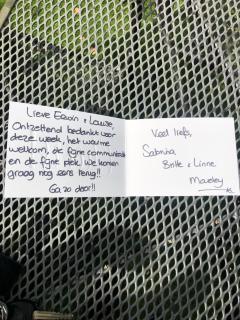 Lieve Erwin + Louise,
Ontzettend bedankt voor
deze week, het warme
welkom, de fijne communicatie
en de fijne plek. We komen
graag nog eens terug!!
Ga zo door!!
Veel liefs,
Sabrina,
Britt & Linne